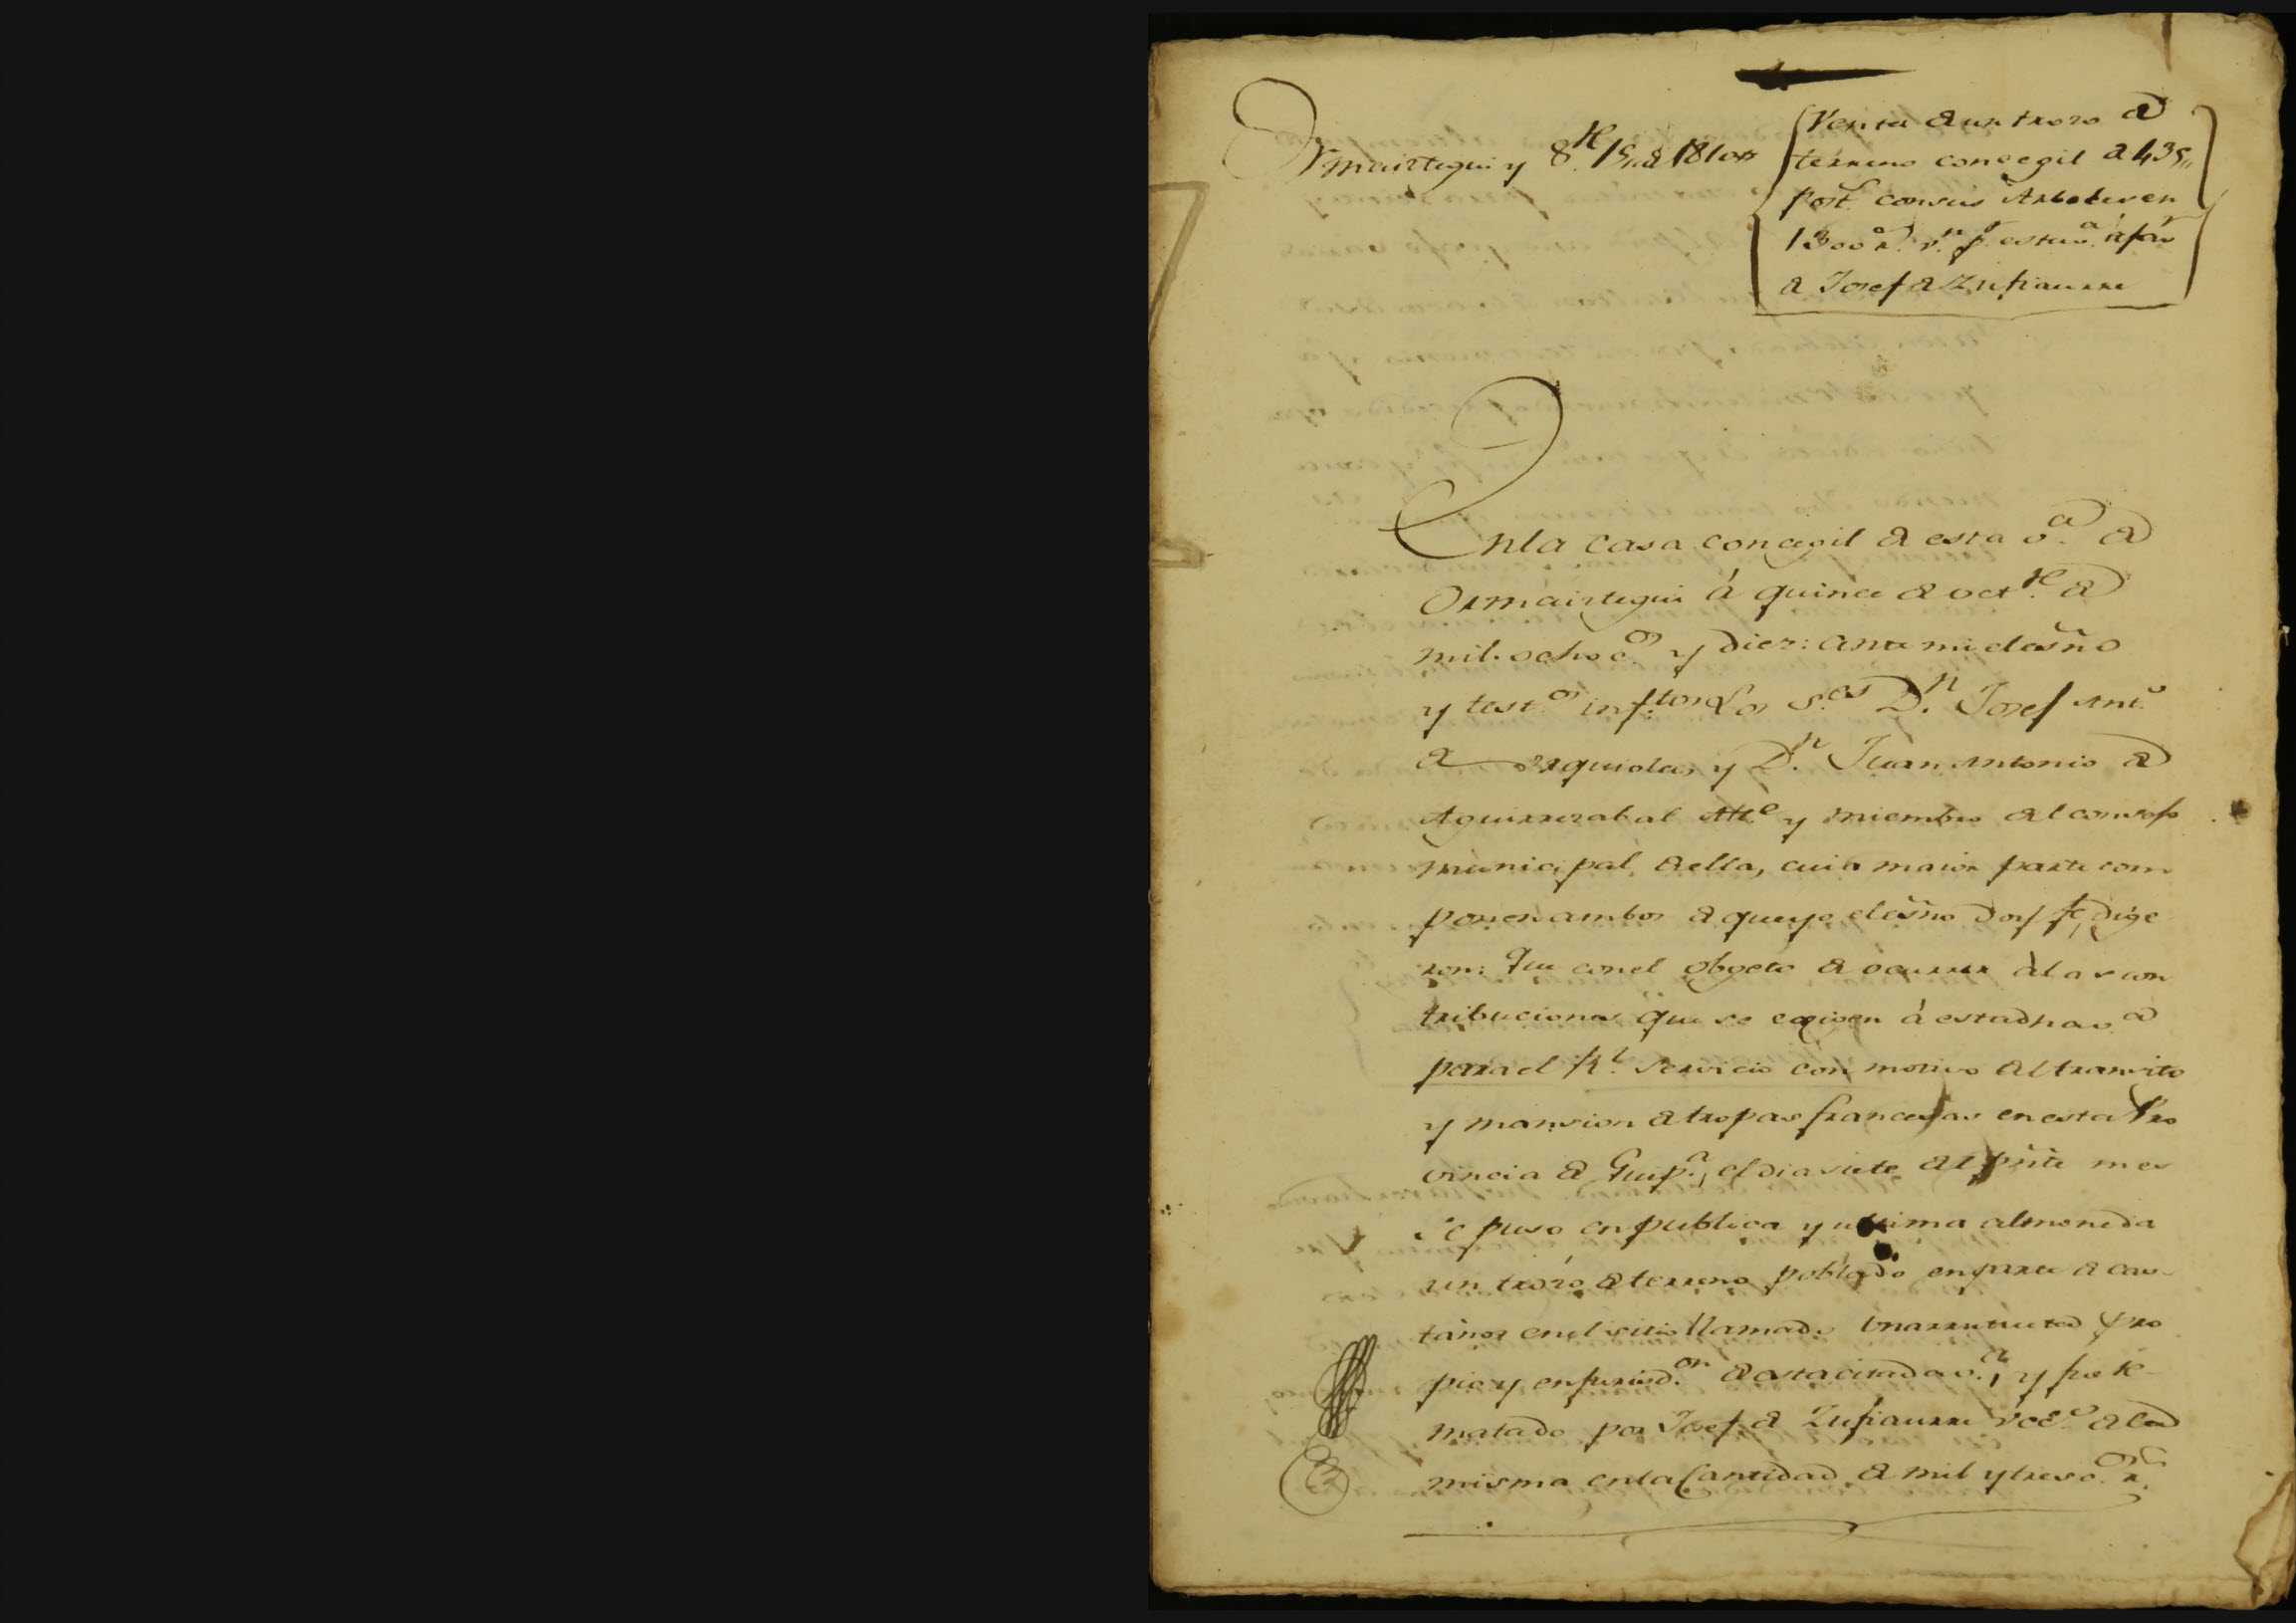 Ormaiztegui y 8.re 15,, de 1810,,
Venta de un trozo de
terreno concegil de 435,,
post.s con sus Arboles en
1300 r.s v.n p.r esta v.a á fav.r
de Josef de Zufiaurre
En la casa concegil de esta v.a de
Ormaiztegui á quince de oct.re de
mil ochoc.os y diez: ante mi el esño
y test.os inf.tos Los S.res D.n Josef Ant.o
de Orquiola, y D.n Juan Antonio de
Aguirrezabal Alc.e y miembro del consejo
municipal de ella, cuia maior parte com
ponen ambos de que yo el esño doy fe, dige
ron: Que con el obgeto de ocurrir à las con
tribuciones que se exigen á esta dha v.a
para el R.l servicio con motivo del transito
y mansion de tropas francesas en esta Pro
vincia de Guip.a, el dia siete del pñte mes
se puso en publica y ultima almoneda
un trozo de terreno poblado en parte de cas
taños en el sitio llamado pro
pio y en jurisd.on de esta citada v.a, y fue re
matado por Josef de Zufiaurre vec.o de la
misma en la Cantidad de mil y tresc.os r.s